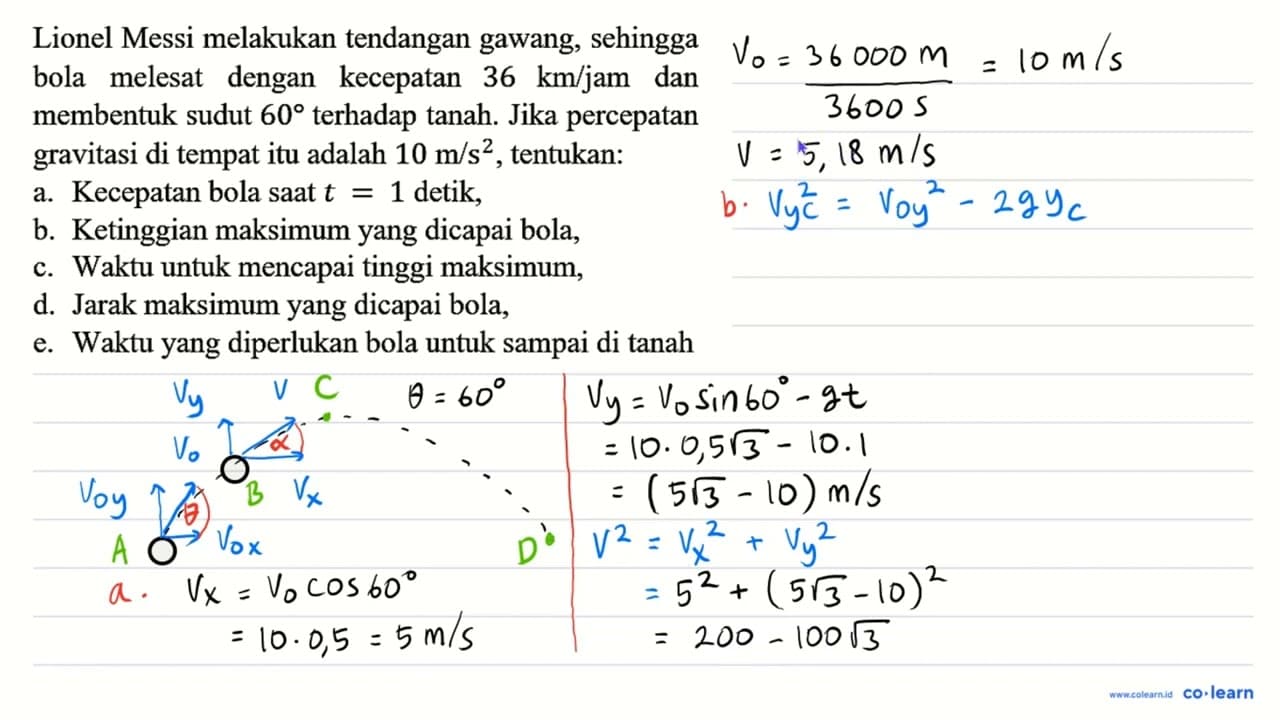 Lionel Messi melakukan tendangan gawang, sehingga
bola melesat dengan kecepatan 36 km/jam dan
membentuk sudut 60° terhadap tanah. Jika percepatan
gravitasi di tempat itu adalah 10 m/s², tentukan:
a. Kecepatan bola saat t = 1 detik,
b. Ketinggian maksimum yang dicapai bola,
c. Waktu untuk mencapai tinggi maksimum,
d. Jarak maksimum yang dicapai bola,
e. Waktu yang diperlukan bola untuk sampai di tanah
V₀ = 36000 m / 3600 s = 10 m/s
V = 5,18 m/s
b. Vyc² = Voy² - 2gyc
Vy V C θ = 60°
V₀ α
Voy θ B Vx
A Vox D
a. Vx = V₀ cos 60°
= 10 . 0,5 = 5 m/s
Vy = V₀ sin 60° - gt
= 10 . 0,5√3 - 10 . 1
= (5√3 - 10) m/s
V² = Vx² + Vy²
= 5² + (5√3 - 10)²
= 200 - 100√3
www.colearn.id co·learn